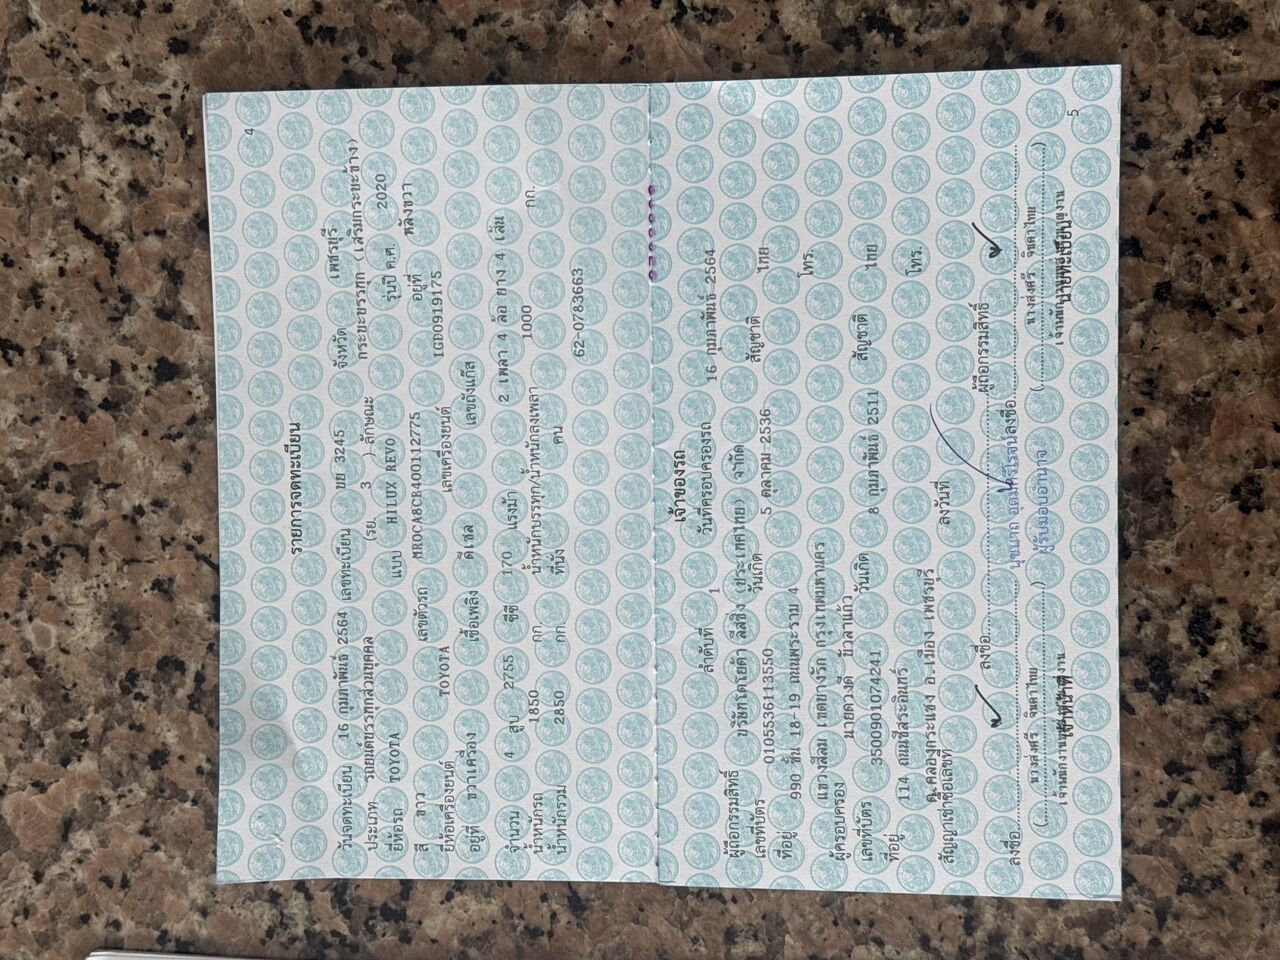 4
รายการจดทะเบียน
วันจดทะเบียน 16 กุมภาพันธ์ 2564 เลขทะเบียน บย 3245 จังหวัด เพชรบุรี
ประเภท รถยนต์บรรทุกส่วนบุคคล (รย. 3 ) ลักษณะ กระบะบรรทุก เสริมกระบะข้าง)
ยี่ห้อรถ TOYOTA แบบ HILUX REVO รุ่นปี ค.ศ. 2020
สี ขาว เลขตัวรถ MROCA8CB400112775 อยู่ที่ พลังขวา
ยี่ห้อเครื่องยนต์ TOYOTA เลขเครื่องยนต์ 1GD0919175
อยู่ที่ ขวาเครื่อง เชื้อเพลิง ดีเซล เลขถังแก๊ส
จำนวน 4 สูบ 2755 ซีซี 170 แรงม้า 2 เพลา 4 ล้อ ยาง 4 เส้น
น้ำหนักรถ 1850 กก. น้ำหนักบรรทุก/น้ำหนักลงเพลา 1000 กก.
น้ำหนักรวม 2850 กก. ที่นั่ง คน
62-0783663
เจ้าของรถ
ลำดับที่ 1 วันที่ครอบครองรถ 16 กุมภาพันธ์ 2564
ผู้ถือกรรมสิทธิ์ บริษัทโตโยต้า ลีสซิ่ง (ประเทศไทย) จำกัด
เลขที่บัตร 0105536113550 วันเกิด 5 ตุลาคม 2536 สัญชาติ ไทย
ที่อยู่ 990 ชั้น 18-19 ถนนพระราม 4 โทร.
แขวงสีลม เขตบางรัก กรุงเทพมหานคร
ผู้ครอบครอง นายดวงดี บัวลาแก้ว
เลขที่บัตร 3500901074241 วันเกิด 8 กุมภาพันธ์ 2511 สัญชาติ ไทย
ที่อยู่ 114 ถนนชีสระอินทร์ โทร.
ต.คลองกระแชง อ.เมือง เพชรบุรี
สัญญาเช่าซื้อเลขที่ ลงวันที่
ลงชื่อ ผู้ถือกรรมสิทธิ์
นุชนาถ อุดมศรีโรจน์
ผู้รับมอบอำนาจ
ลงชื่อ ลงชื่อ
(นางส่งศรี จินดาไทย) (นางส่งศรี จินดาไทย)
เจ้าหน้าที่ นายทะเบียน
5